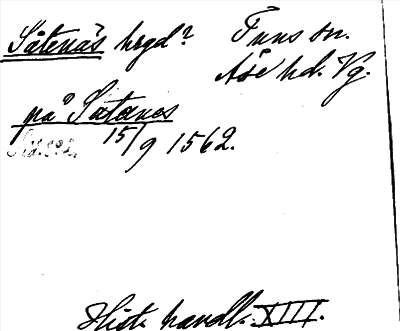 Såtenäs hrgd? Tuns sn.
Åse hd. Vg.
på Satanes
15/9 1562.
Hist. handl. XIII.